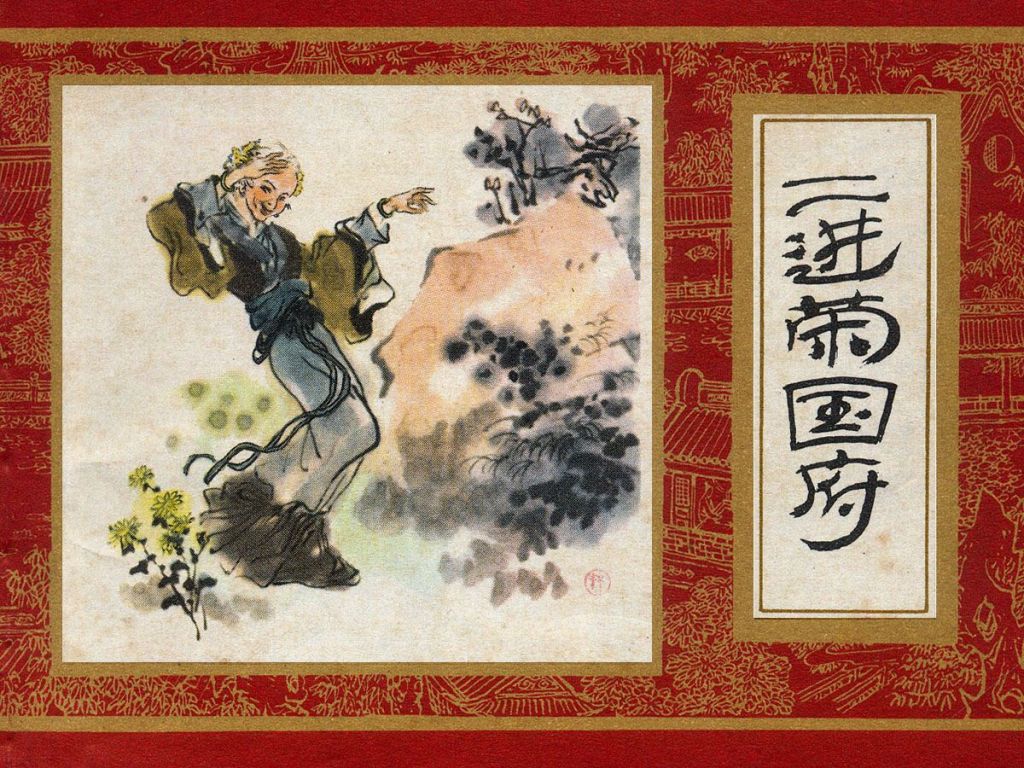 二进荣国府